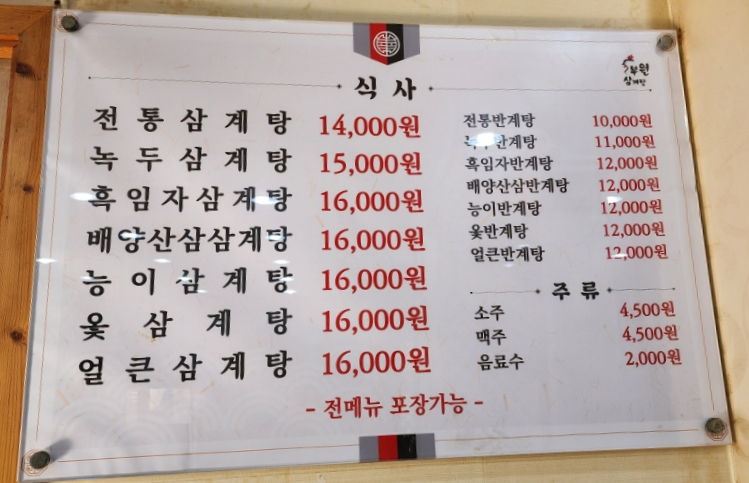 식사
부원
삼계탕
전통삼계탕 14,000원
녹두삼계탕 15,000원
흑임자삼계탕 16,000원
배양산삼삼계탕 16,000원
능이삼계탕 16,000원
옻삼계탕 16,000원
얼큰삼계탕 16,000원
전통반계탕 10,000원
녹두반계탕 11,000원
흑임자반계탕 12,000원
배양산삼반계탕 12,000원
능이반계탕 12,000원
옻반계탕 12,000원
얼큰반계탕 12,000원
주류
소주 4,500원
맥주 4,500원
음료수 2,000원
- 전메뉴 포장가능 -